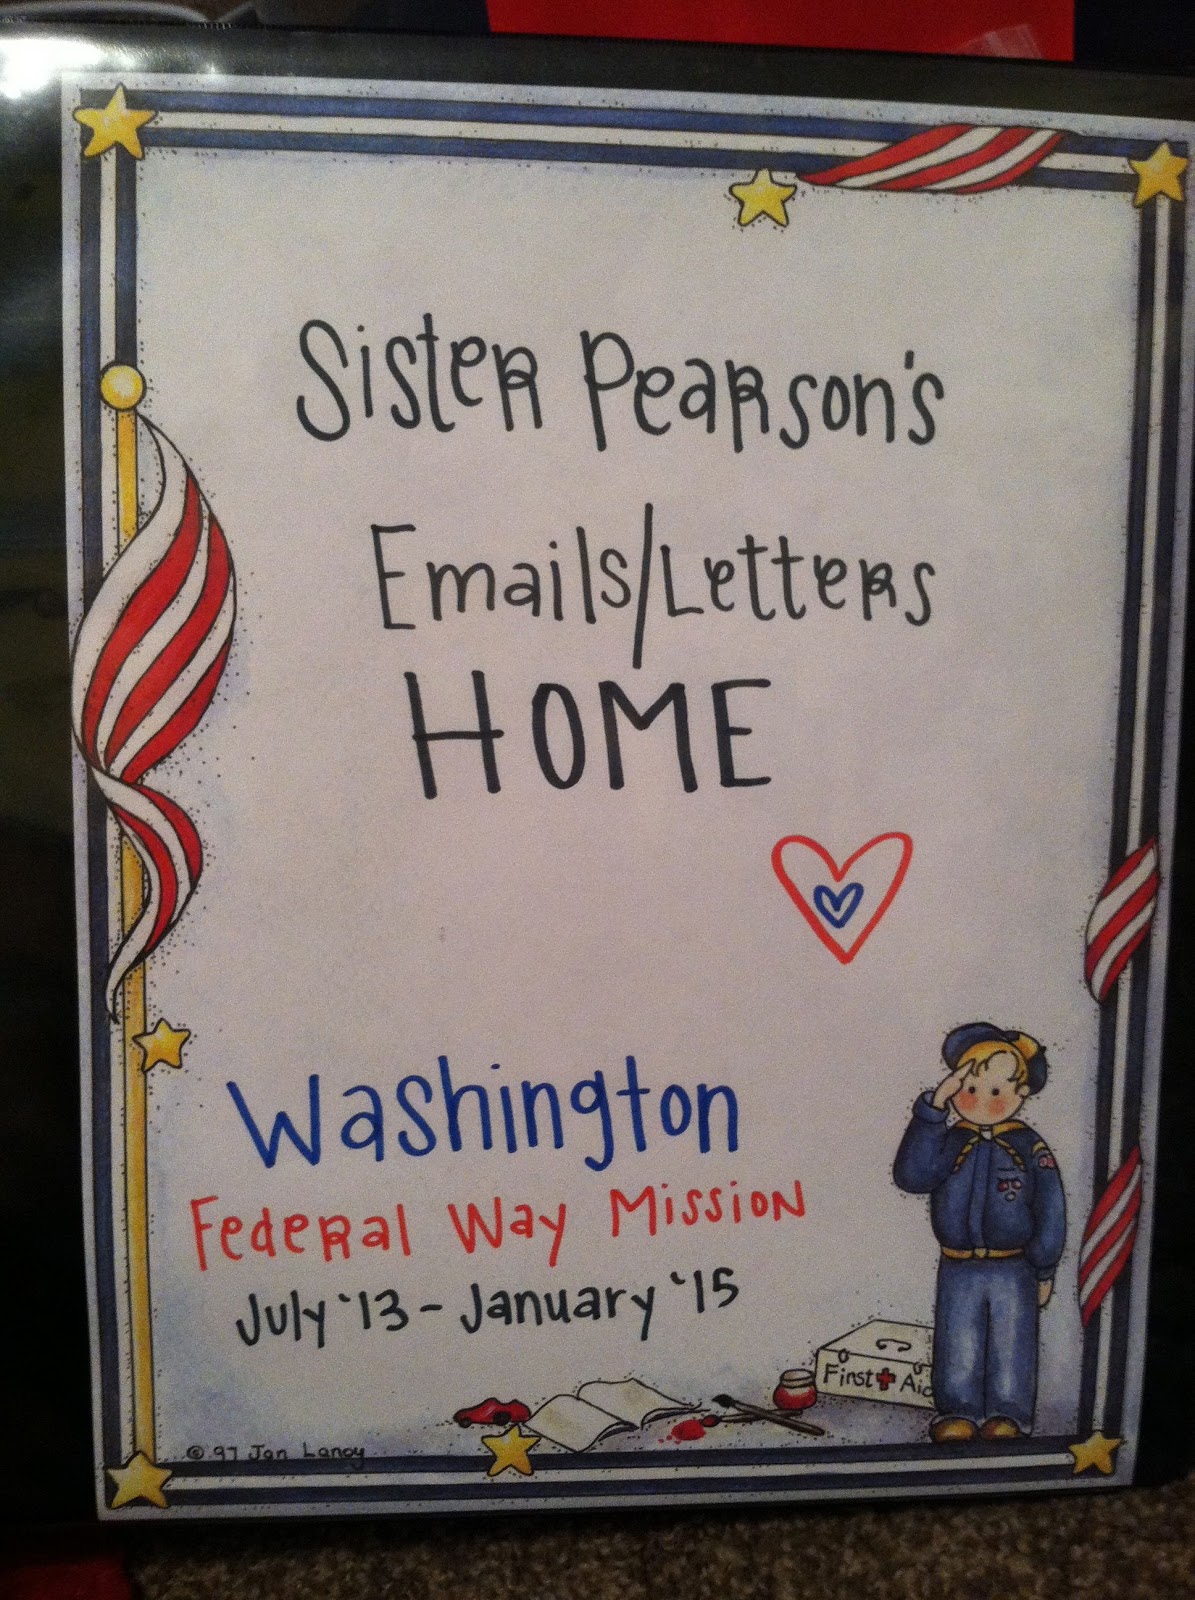 Sister Pearson's
Emails/Letters
HOME
Washington
Federal Way Mission
July '13 - January '15
First Aid
© 97 Jan Lanoy